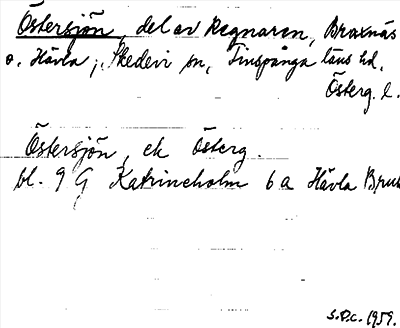 Östersjön, del av Regnaren, Braxnäs
o. Hävla; Skedevi sn, Finspånga läns hd.
Österg. l.
Östersjön, ek Österg.
bl. 9 G Katrineholm 6 a Hävla Bruk
S.D.C. 1959.